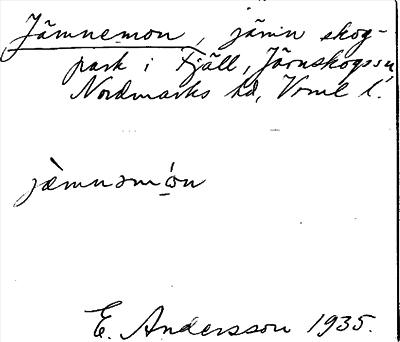 Jämnemon, jämn skog-
park i Fjäll, Järnskogs sn,
Nordmarks hd, Vrml l.
jämnəmo̤n
E. Andersson 1935.